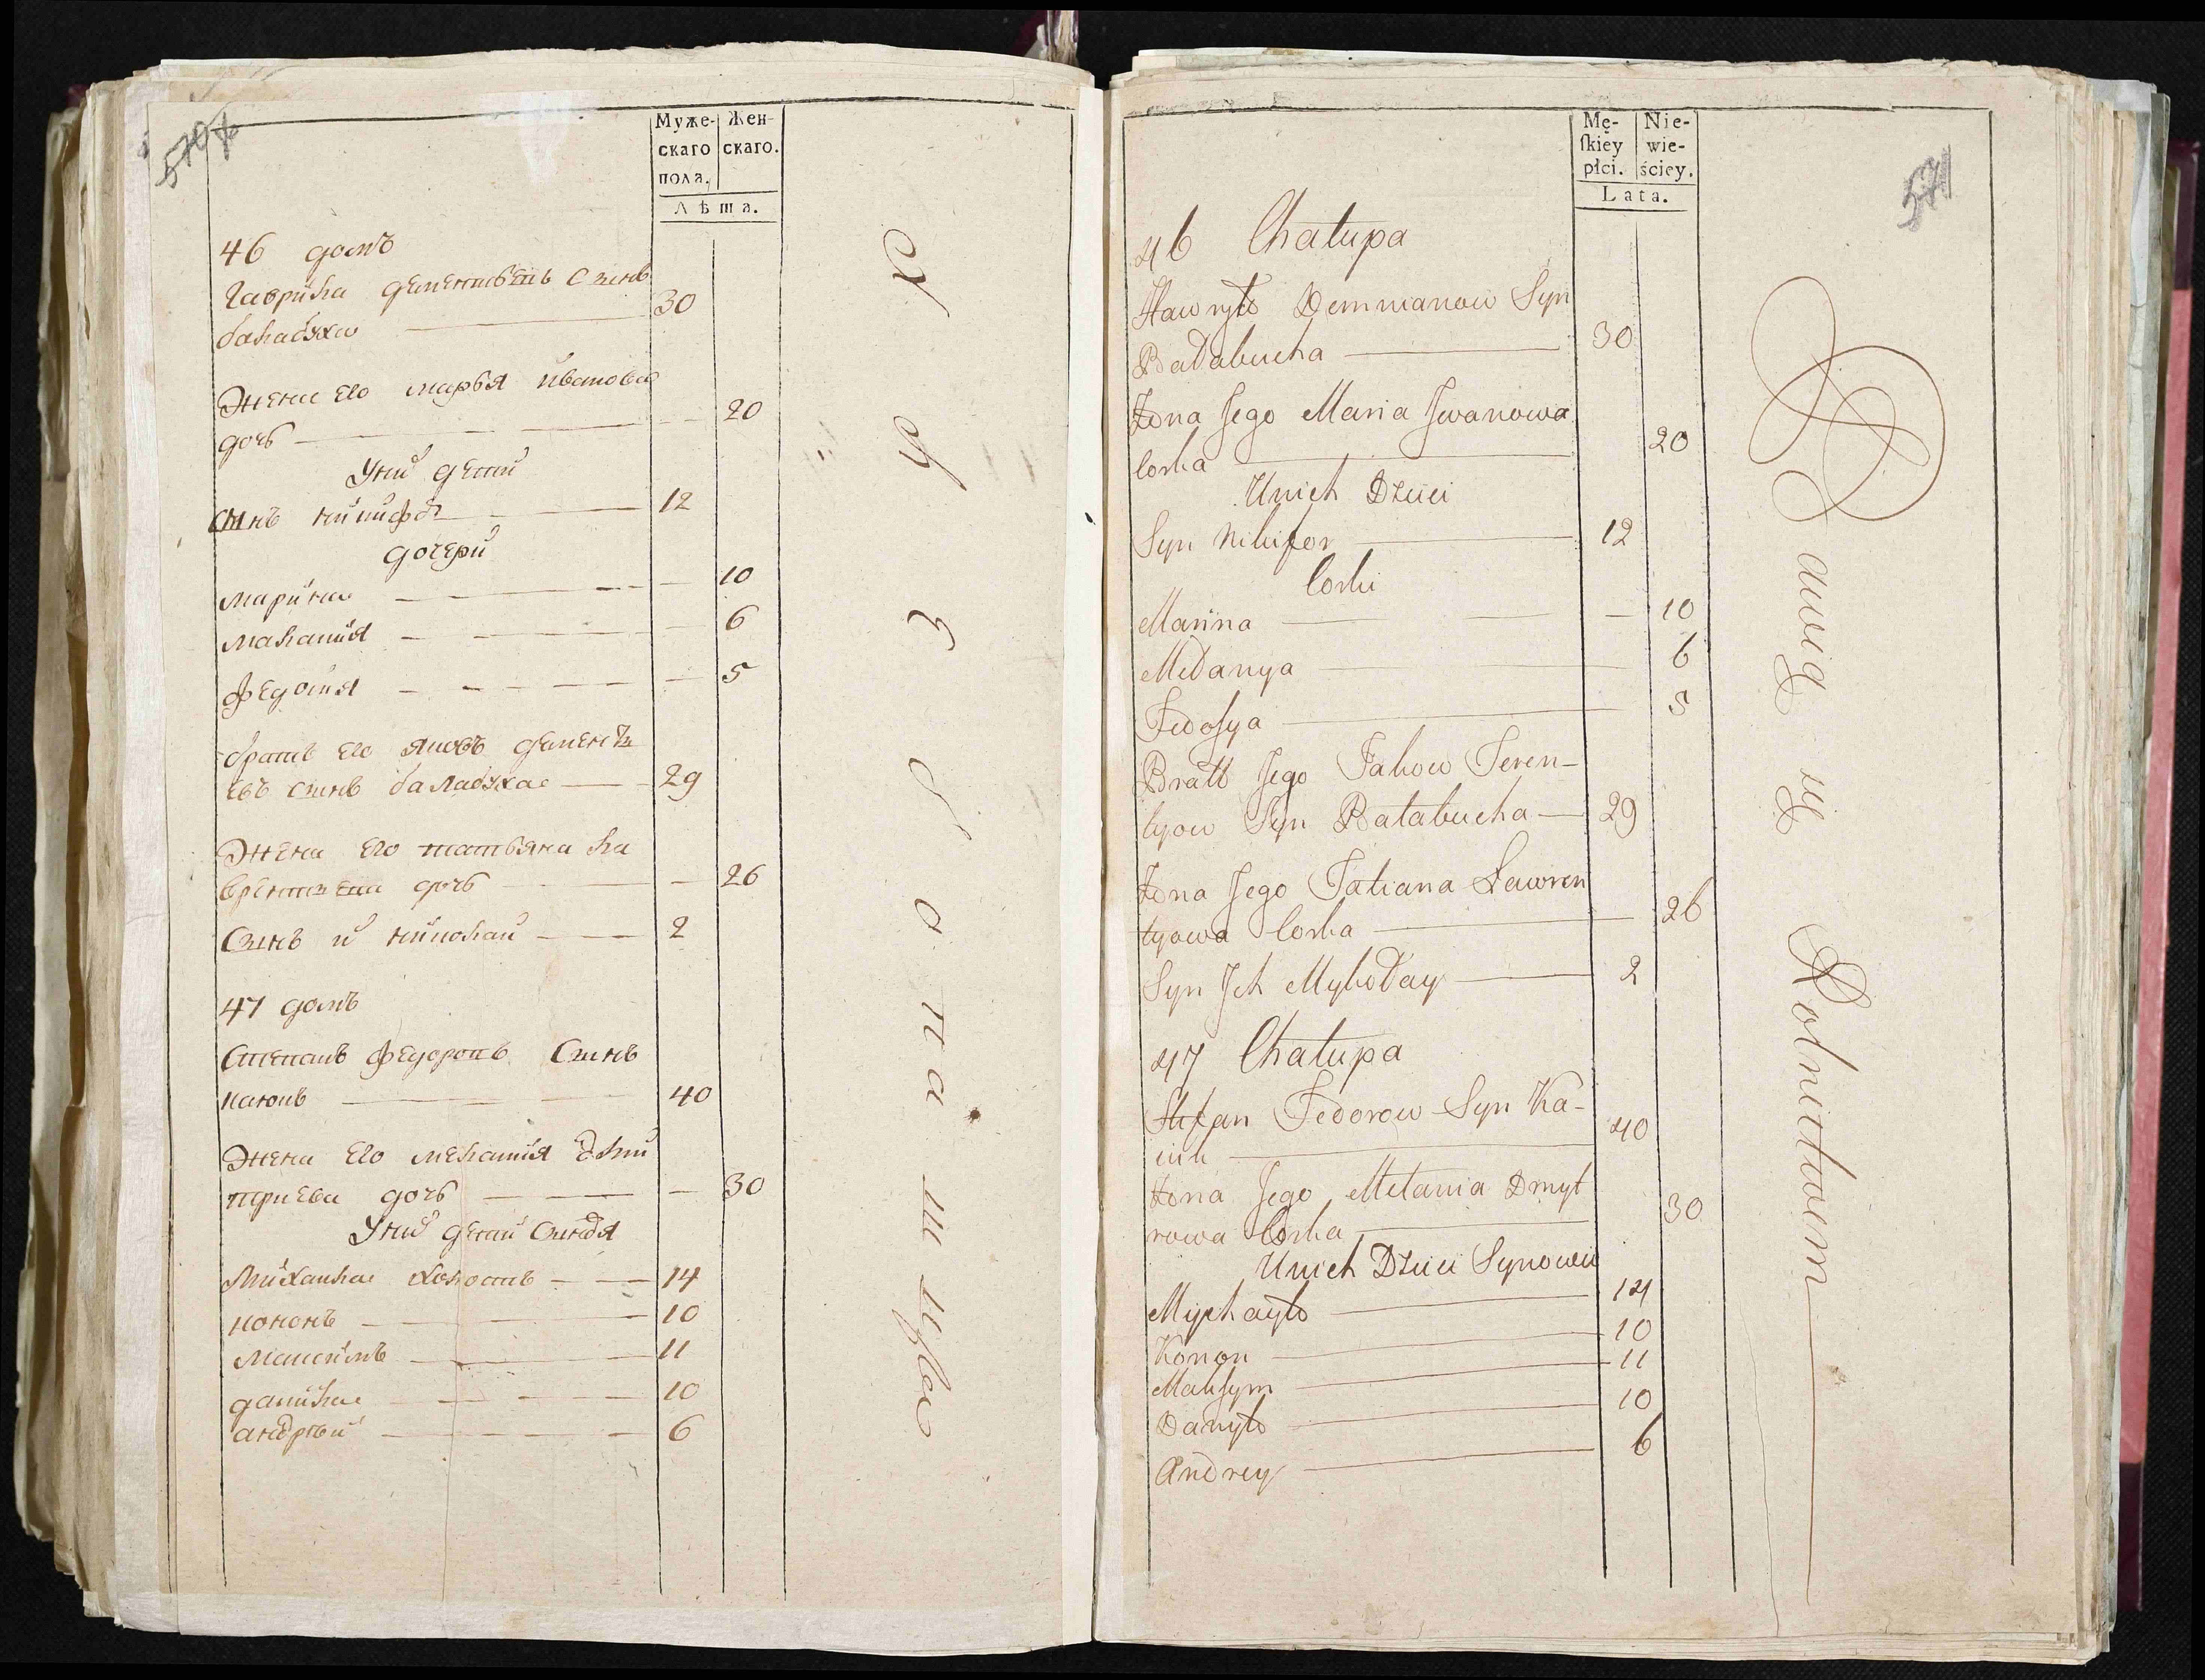 570
Муже-
скаго
пола.
Жен-
скаго.
Лѣта.
46 домъ
Гаврила дементѣвъ Сынъ
балабуха 30
Жена Его марья иванова
дочь 20
Унихъ дети
Сынъ никифоръ 12
дочери
марина 10
малания 6
федосия 5
братъ Его яковъ дементь
евъ Сынъ балабуха 29
Жена Его татьяна ла
врентиева дочь 26
Сынъ и николай 2
47 домъ
Степанъ федоровъ Сынъ
каюкъ 40
Жена Его мелания дми
триева дочь 30
Унихъ дети Сыновья
Михаила холостъ 14
кононъ 10
максимъ 11
данила 10
андрѣй 6
571
Mę-
ſkiey
płci.
Nie-
wie-
ściey.
Lata.
46 Chałupa
Hawryło Demmanow Syn
Bałabucha 30
Żona Jego Maria Jwanowa
Corka 20
Unich Dzieci
Syn Nikifor 12
Corki
Marina 10
Mełanya 6
Fedosya 5
Bratt Jego Jakow Teren-
tyow Syn Bałabucha 29
Żona Jego Tatiana Ławren
tyowa Corka 26
Syn Jch Mykołay 2
47 Chałupa
Stefan Fedorow Syn Ka-
iuk 40
Żona Jego Mełania Dmyt
rowa Corka 30
Unich Dzieci Synowie
Mychayło 14
Konon 10
Maksym 11
Danyło 10
Andrey 6
Rolnictwem